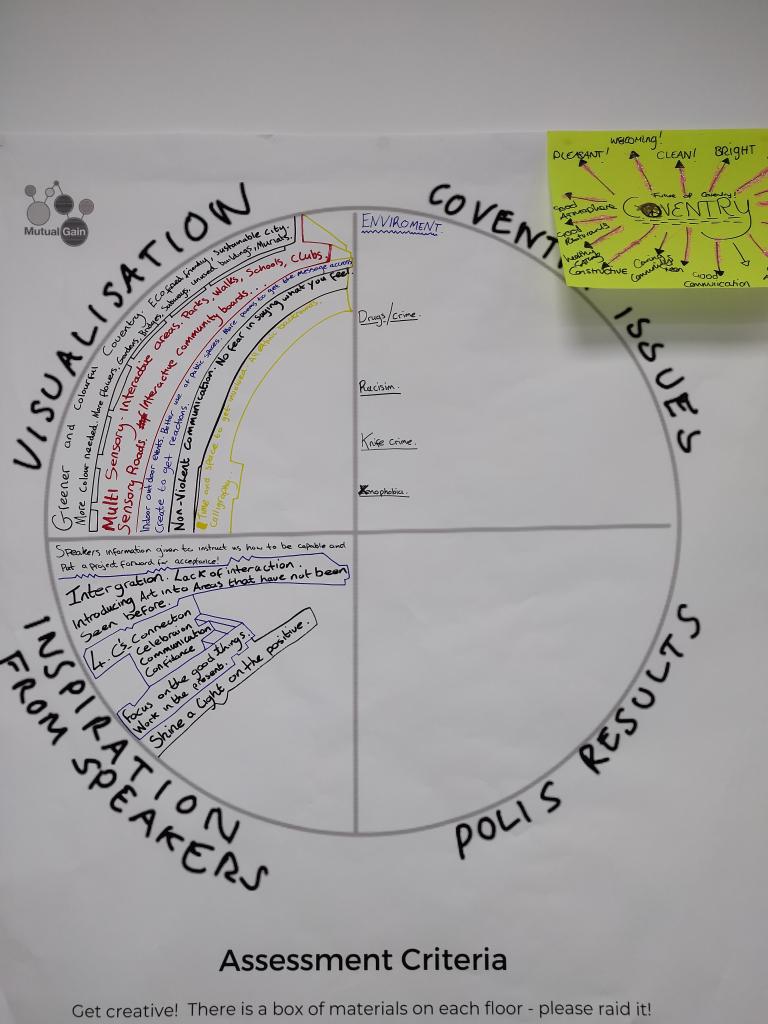 Mutual Gain
VISUALISATION
Greener and Colourful Coventry. Eco feed friendly, Sustainable City.
More Colour needed. More Flowers, Gardens, Bridges, Subways, unused buildings, Murials.
Multi Sensory. Interactive areas. Parks, Walks, Schools, Clubs,
Sensory Roads. Interactive community boards...
Indoor outdoor events. Better use of Public Spaces. More poems to get the message across
Create to get reactions.
Non-Violent Communication. No fear in saying what you feel
Time and space to get involved. All other backrounds.
Calligraphy.
COVENT
ISSUES
ENVIROMENT
Drugs/crime.
Racisim.
Knife crime.
Xenophobia.
WELCOMING!
PLEASANT!
CLEAN!
BRIGHT
Future of Coventry!
COVENTRY
Good
Atmosphere
Good
Constructive
Caring
Good
Communication
INSPIRATION
FROM SPEAKERS
Speakers information given to instruct us how to be capable and
Put a project forward for acceptance!
Intergration. Lack of interaction.
Introducing Art into Areas that have not been
Seen before.
4. C's. Connection
Celebraion
Communication
Confidance
Focus on the good things.
Work in the present.
Shine a light on the positive.
POLIS RESULTS
Assessment Criteria
Get creative! There is a box of materials on each floor - please raid it!